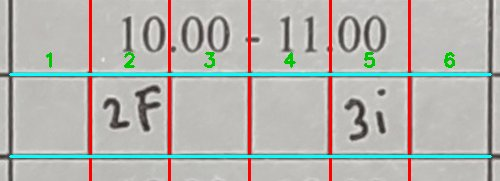 10.00 - 11.00
1 2 3 4 5 6
2F 3i